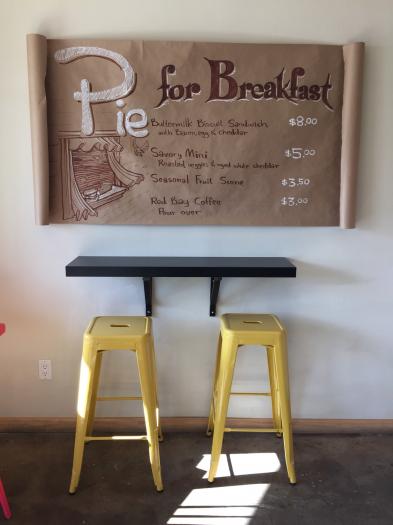 Pie for Breakfast
Buttermilk Biscuit Sandwich $8.00
with Bacon, egg & cheddar
Savory Mini $5.00
Roasted veggies & aged white cheddar
Seasonal Fruit Scone $3.50
Red Bay Coffee $3.00
Pour over